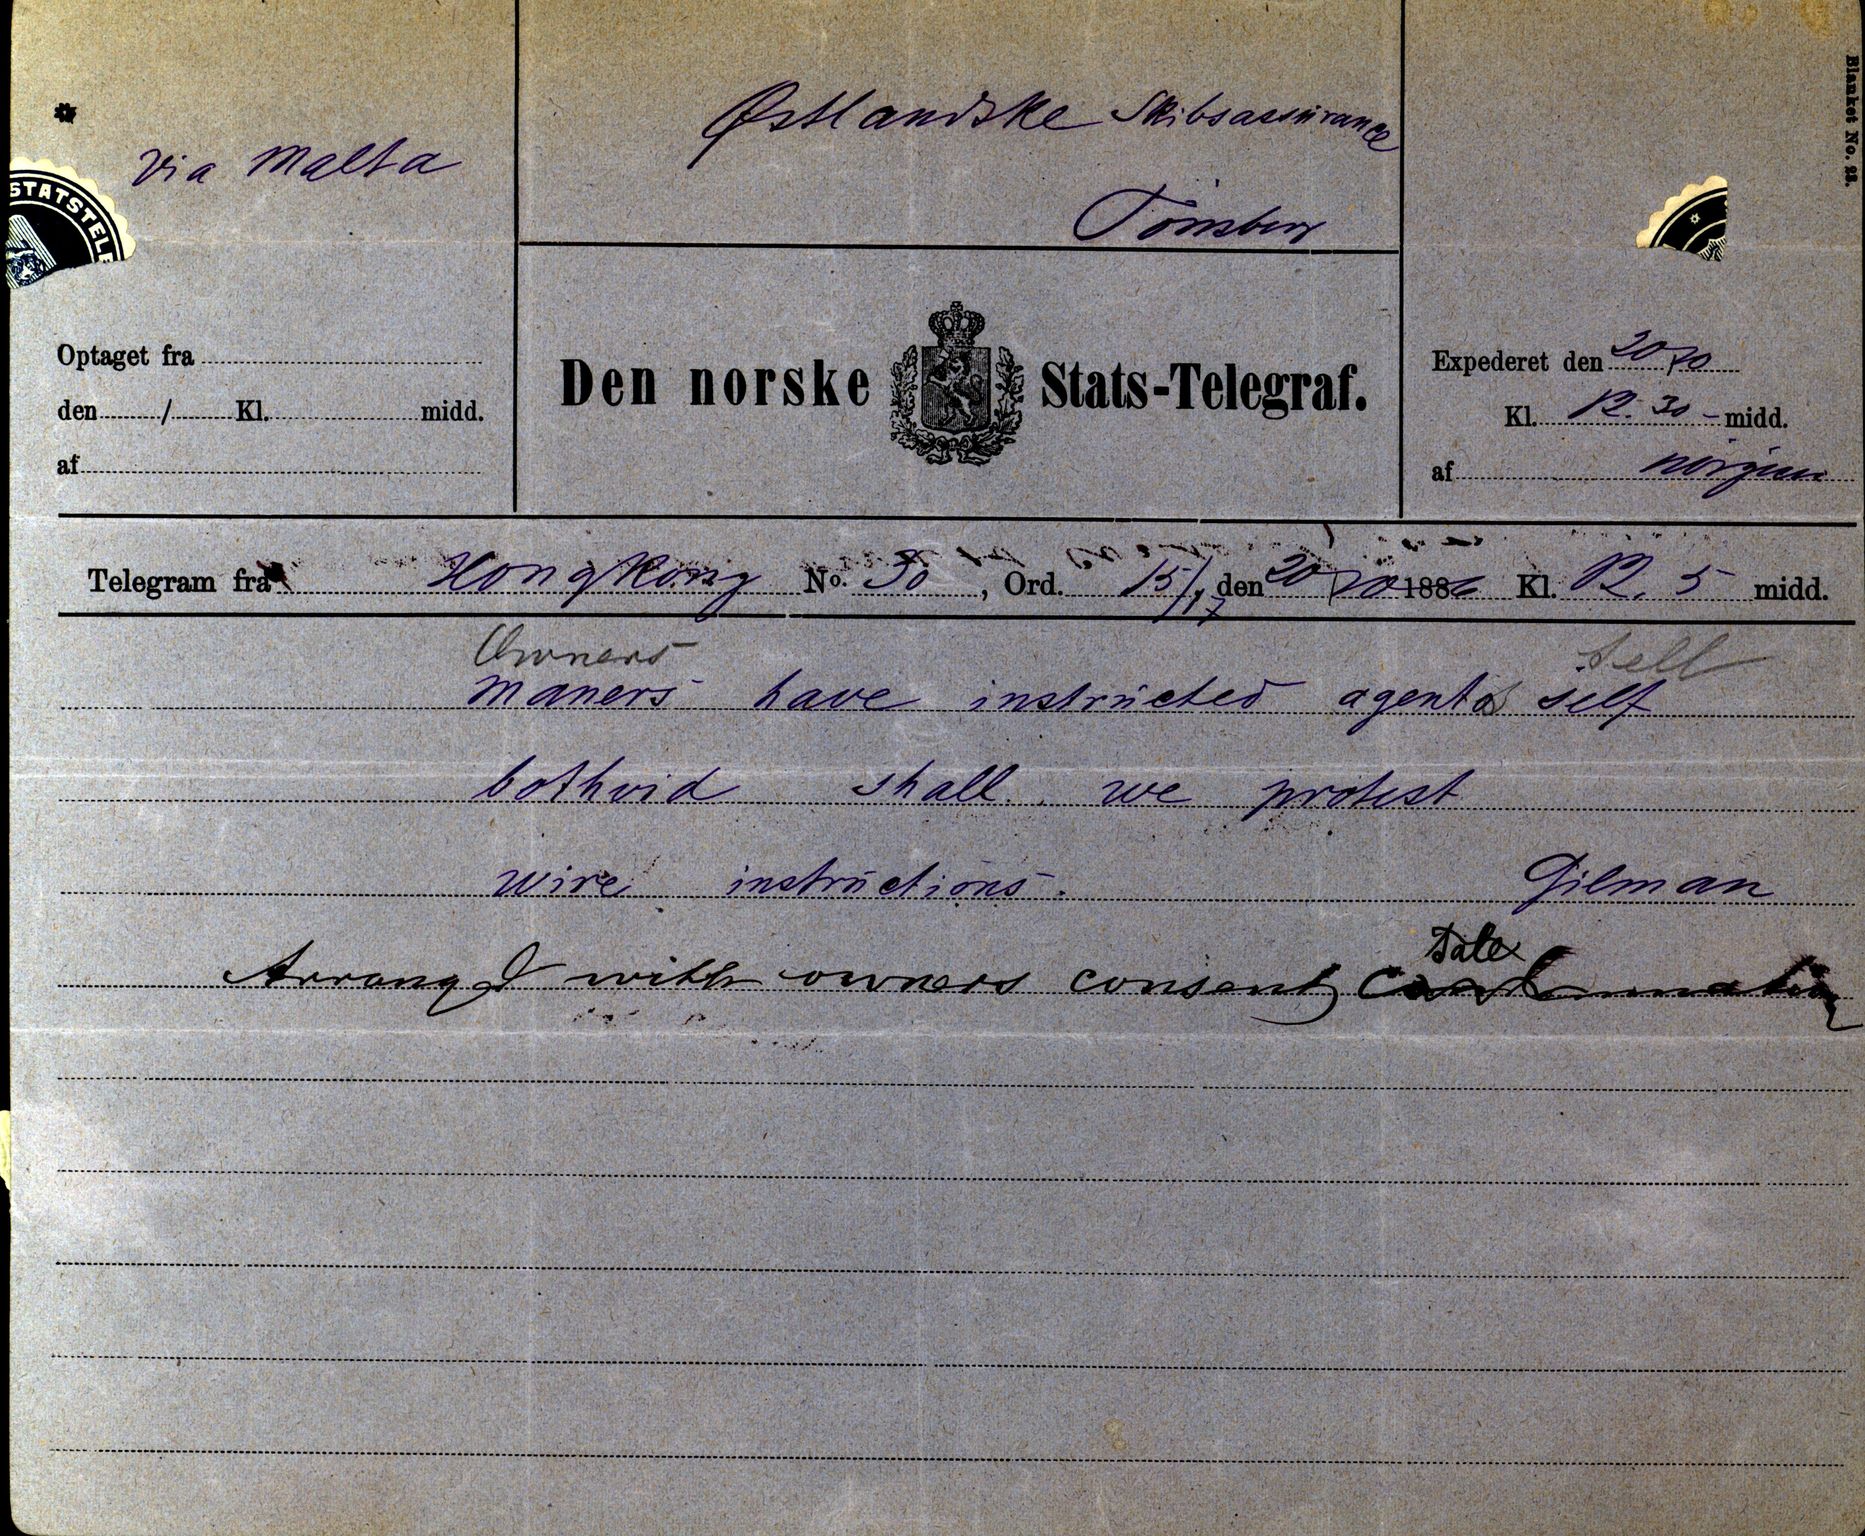 Blanket No. 23.
Østlandske Skibsassurance
Via Malta
STATSTELE
Tønsberg
Optaget fra
den / Kl. midd.
af
Den norske Stats-Telegraf.
Expederet den 20/10
Kl. 12.30 - midd.
af
Telegram fra HongKong No. 30, Ord. 15/17, den 20/10 1886 Kl. 12.5 midd.
Owners sell
maners have instructed agents self
bothvid shall we protest
wire instructions. Gilman
Sale
Arranged with owners consent Condemnation